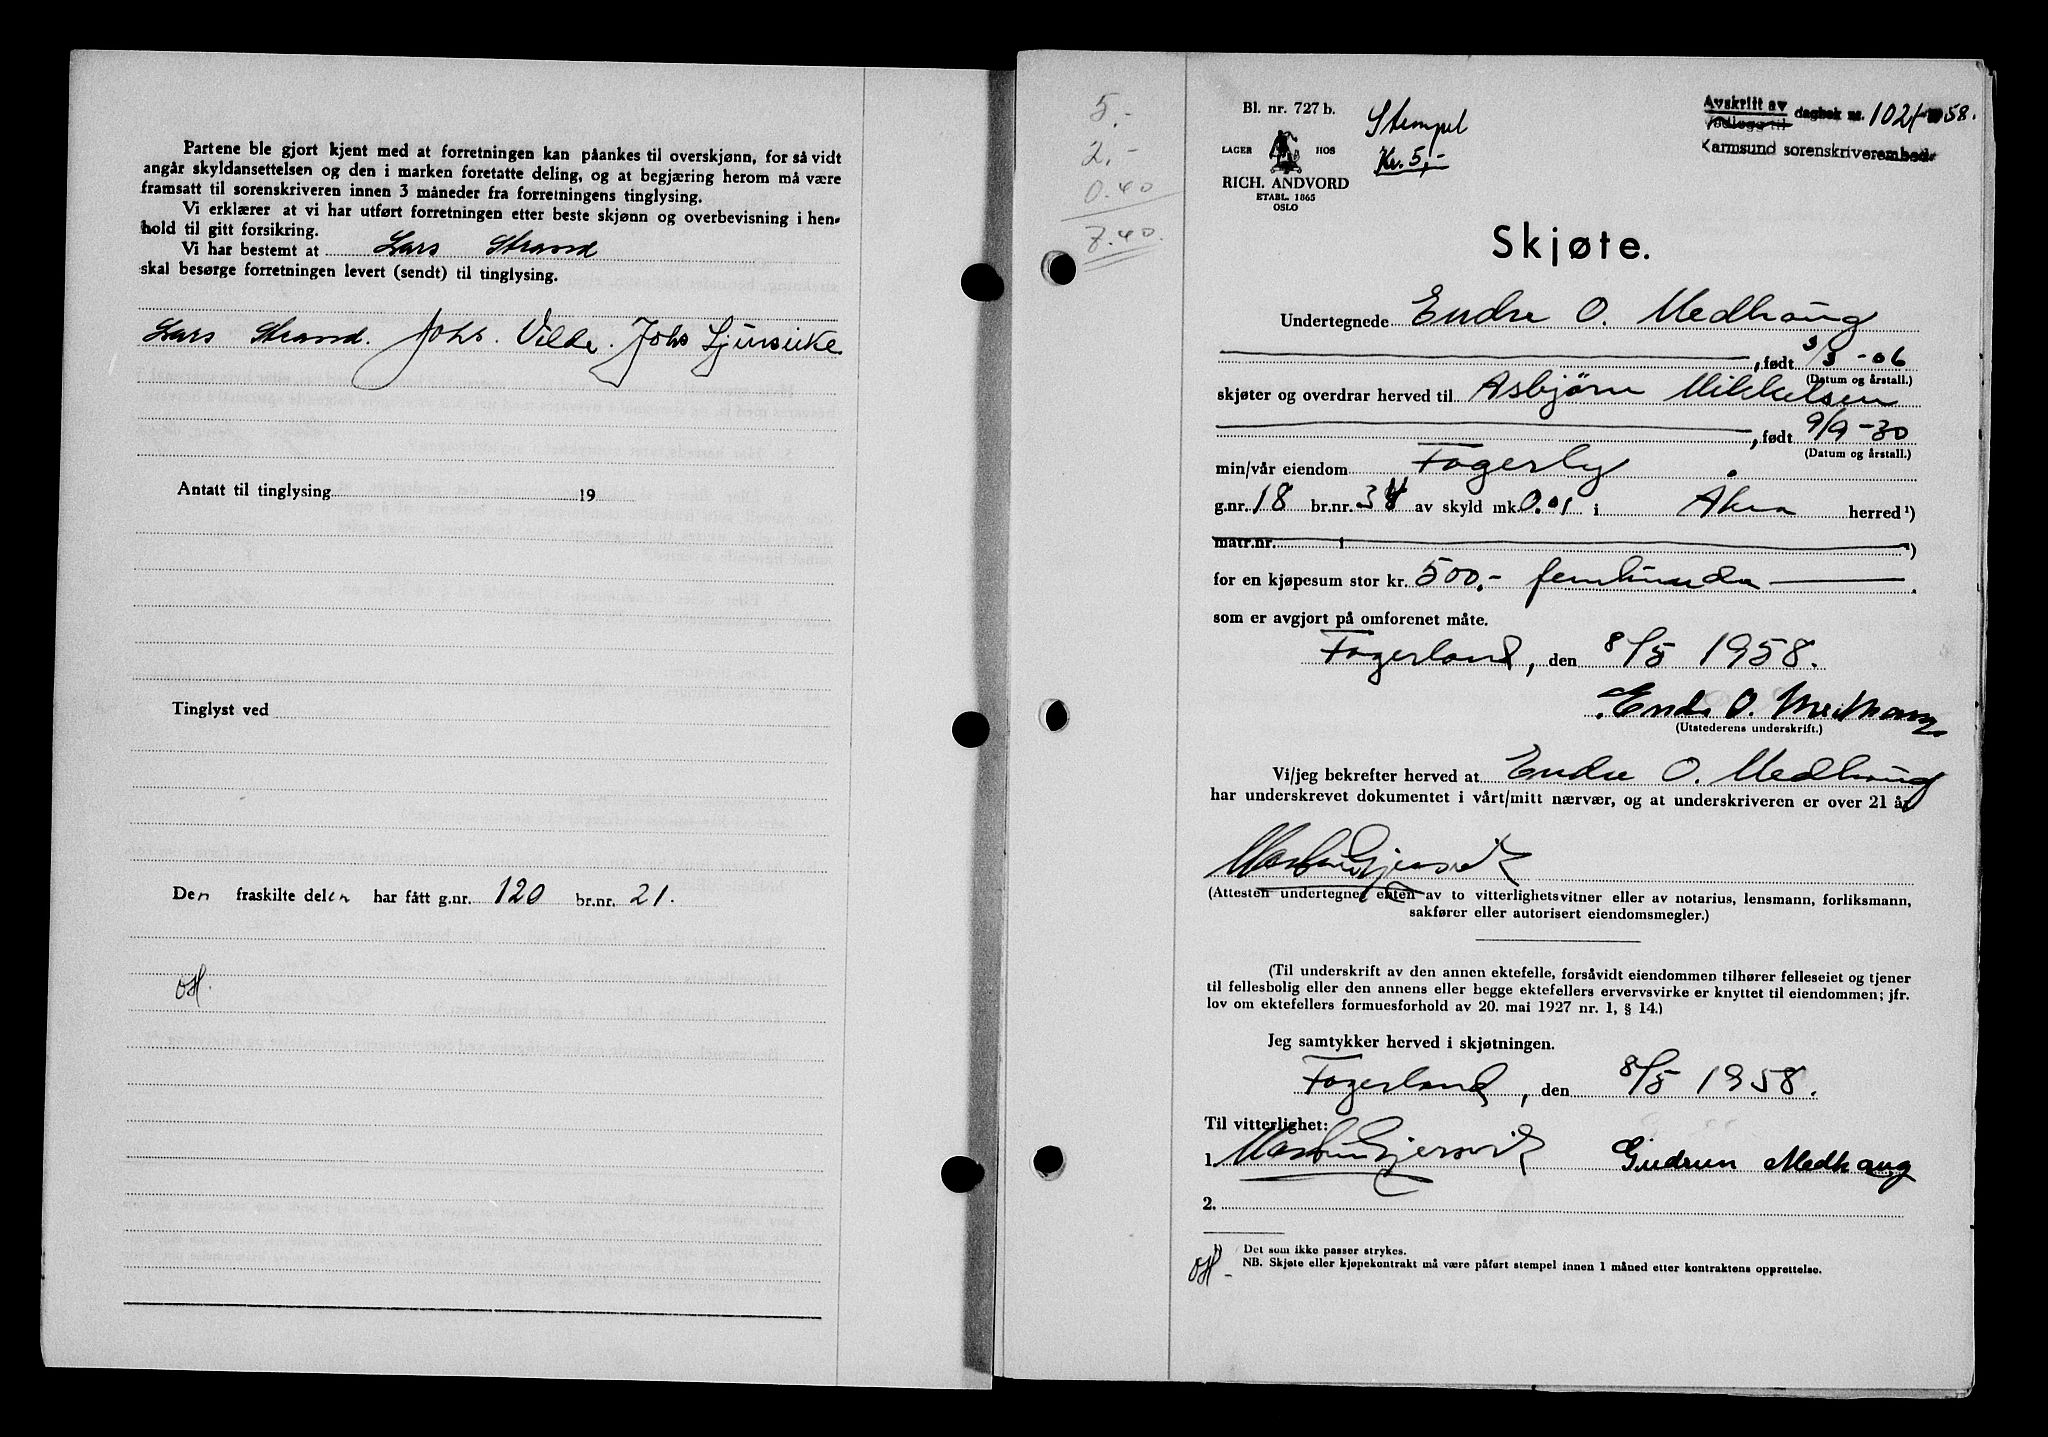 Partene ble gjort kjent med at forretningen kan påankes til overskjønn, for så vidt
angår skyldansettelsen og den i marken foretatte deling, og at begjæring herom må være
framsatt til sorenskriveren innen 3 måneder fra forretningens tinglysing.
Vi erklærer at vi har utført forretningen etter beste skjønn og overbevisning i hen-
hold til gitt forsikring.
Vi har bestemt at Lars Strand
skal besørge forretningen levert (sendt) til tinglysing.
Lars Strand. Johs. Vilde. Johs
Antatt til tinglysing 19
Tinglyst ved
Den fraskilte delen har fått g.nr. 120 br.nr. 21.
5.-
2.-
0.40
7.40.
Bl. nr. 727 b.
LAGER HOS
RICH. ANDVORD
ETABL. 1865
OSLO
Stempel
Kr. 5,-
Avskrift av
Vedlegg til dagbok nr. 1021 1958.
Karmsund sorenskriverembede
Skjøte.
Undertegnede Endre O. Medhaug
, født 3/3-06
(Datum og årstall.)
skjøter og overdrar herved til Asbjørn Mikkelsen
, født 9/9-30
(Datum og årstall.)
min/vår eiendom Fagerly
g.nr. 18 br.nr. 34 av skyld mk. 0.01 i Åkra herred¹)
matr.nr. i ¹)
for en kjøpesum stor kr. 500.- femhundre
som er avgjort på omforenet måte.
Fagerland, den 8/5 1958.
Endre O. Medhaug
(Utstederens underskrift.)
Vi/jeg bekrefter herved at Endre O. Medhaug
har underskrevet dokumentet i vårt/mitt nærvær, og at underskriveren er over 21 år
(Attesten undertegnet enten av to vitterlighetsvitner eller av notarius, lensmann, forliksmann,
sakfører eller autorisert eiendomsmegler.)
(Til underskrift av den annen ektefelle, forsåvidt eiendommen tilhører felleseiet og tjener
til fellesbolig eller den annens eller begge ektefellers ervervsvirke er knyttet til eiendommen; jfr.
lov om ektefellers formuesforhold av 20. mai 1927 nr. 1, § 14.)
Jeg samtykker herved i skjøtningen.
Fagerland, den 8/5 1958.
Til vitterlighet:
1. Gudrun Medhaug
2.
¹) Det som ikke passer strykes.
NB. Skjøte eller kjøpekontrakt må være påført stempel innen 1 måned etter kontraktens opprettelse.